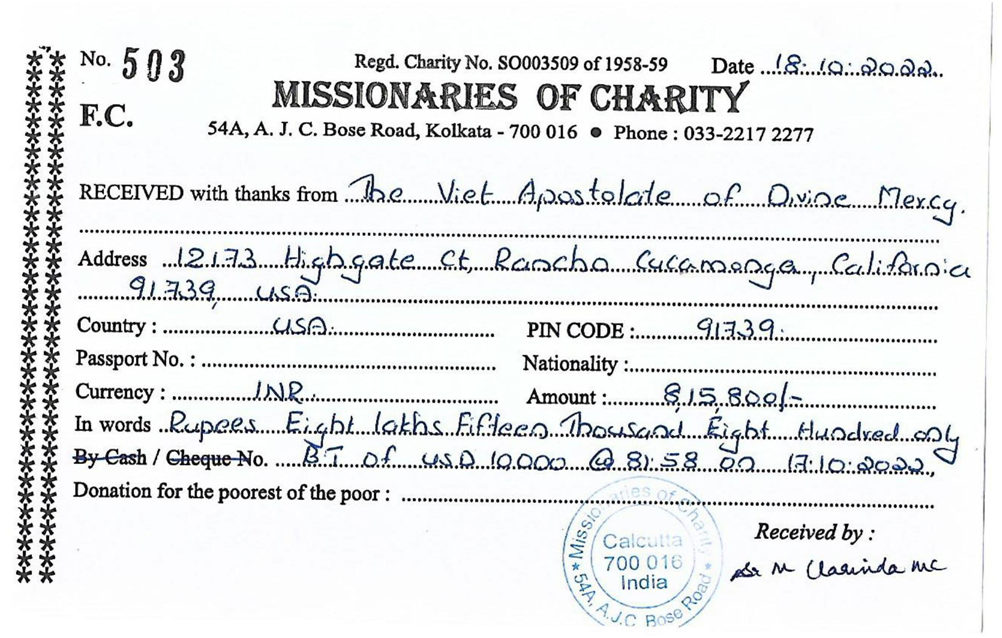 No. 503
Regd. Charity No. SO003509 of 1958-59
Date 18.10.2022
F.C.
MISSIONARIES OF CHARITY
54A, A. J. C. Bose Road, Kolkata - 700 016 ● Phone : 033-2217 2277
RECEIVED with thanks from The Viet Apostolate of Divine Mercy.
Address 12173 Highgate Ct, Rancho Cucamonga, California
91739, USA.
Country : USA. PIN CODE : 91739.
Passport No. : Nationality :
Currency : INR. Amount : 8,15,800/-
In words Rupees Eight lakhs Fifteen Thousand Eight Hundred only
By Cash / Cheque No. BT of USD 10,000 @ 81.58 on 17.10.2022,
Donation for the poorest of the poor :
Received by :
Sr M Clarinda MC
Missionaries of Charity
Calcutta
700 016
India
54A, A.J.C Bose Road